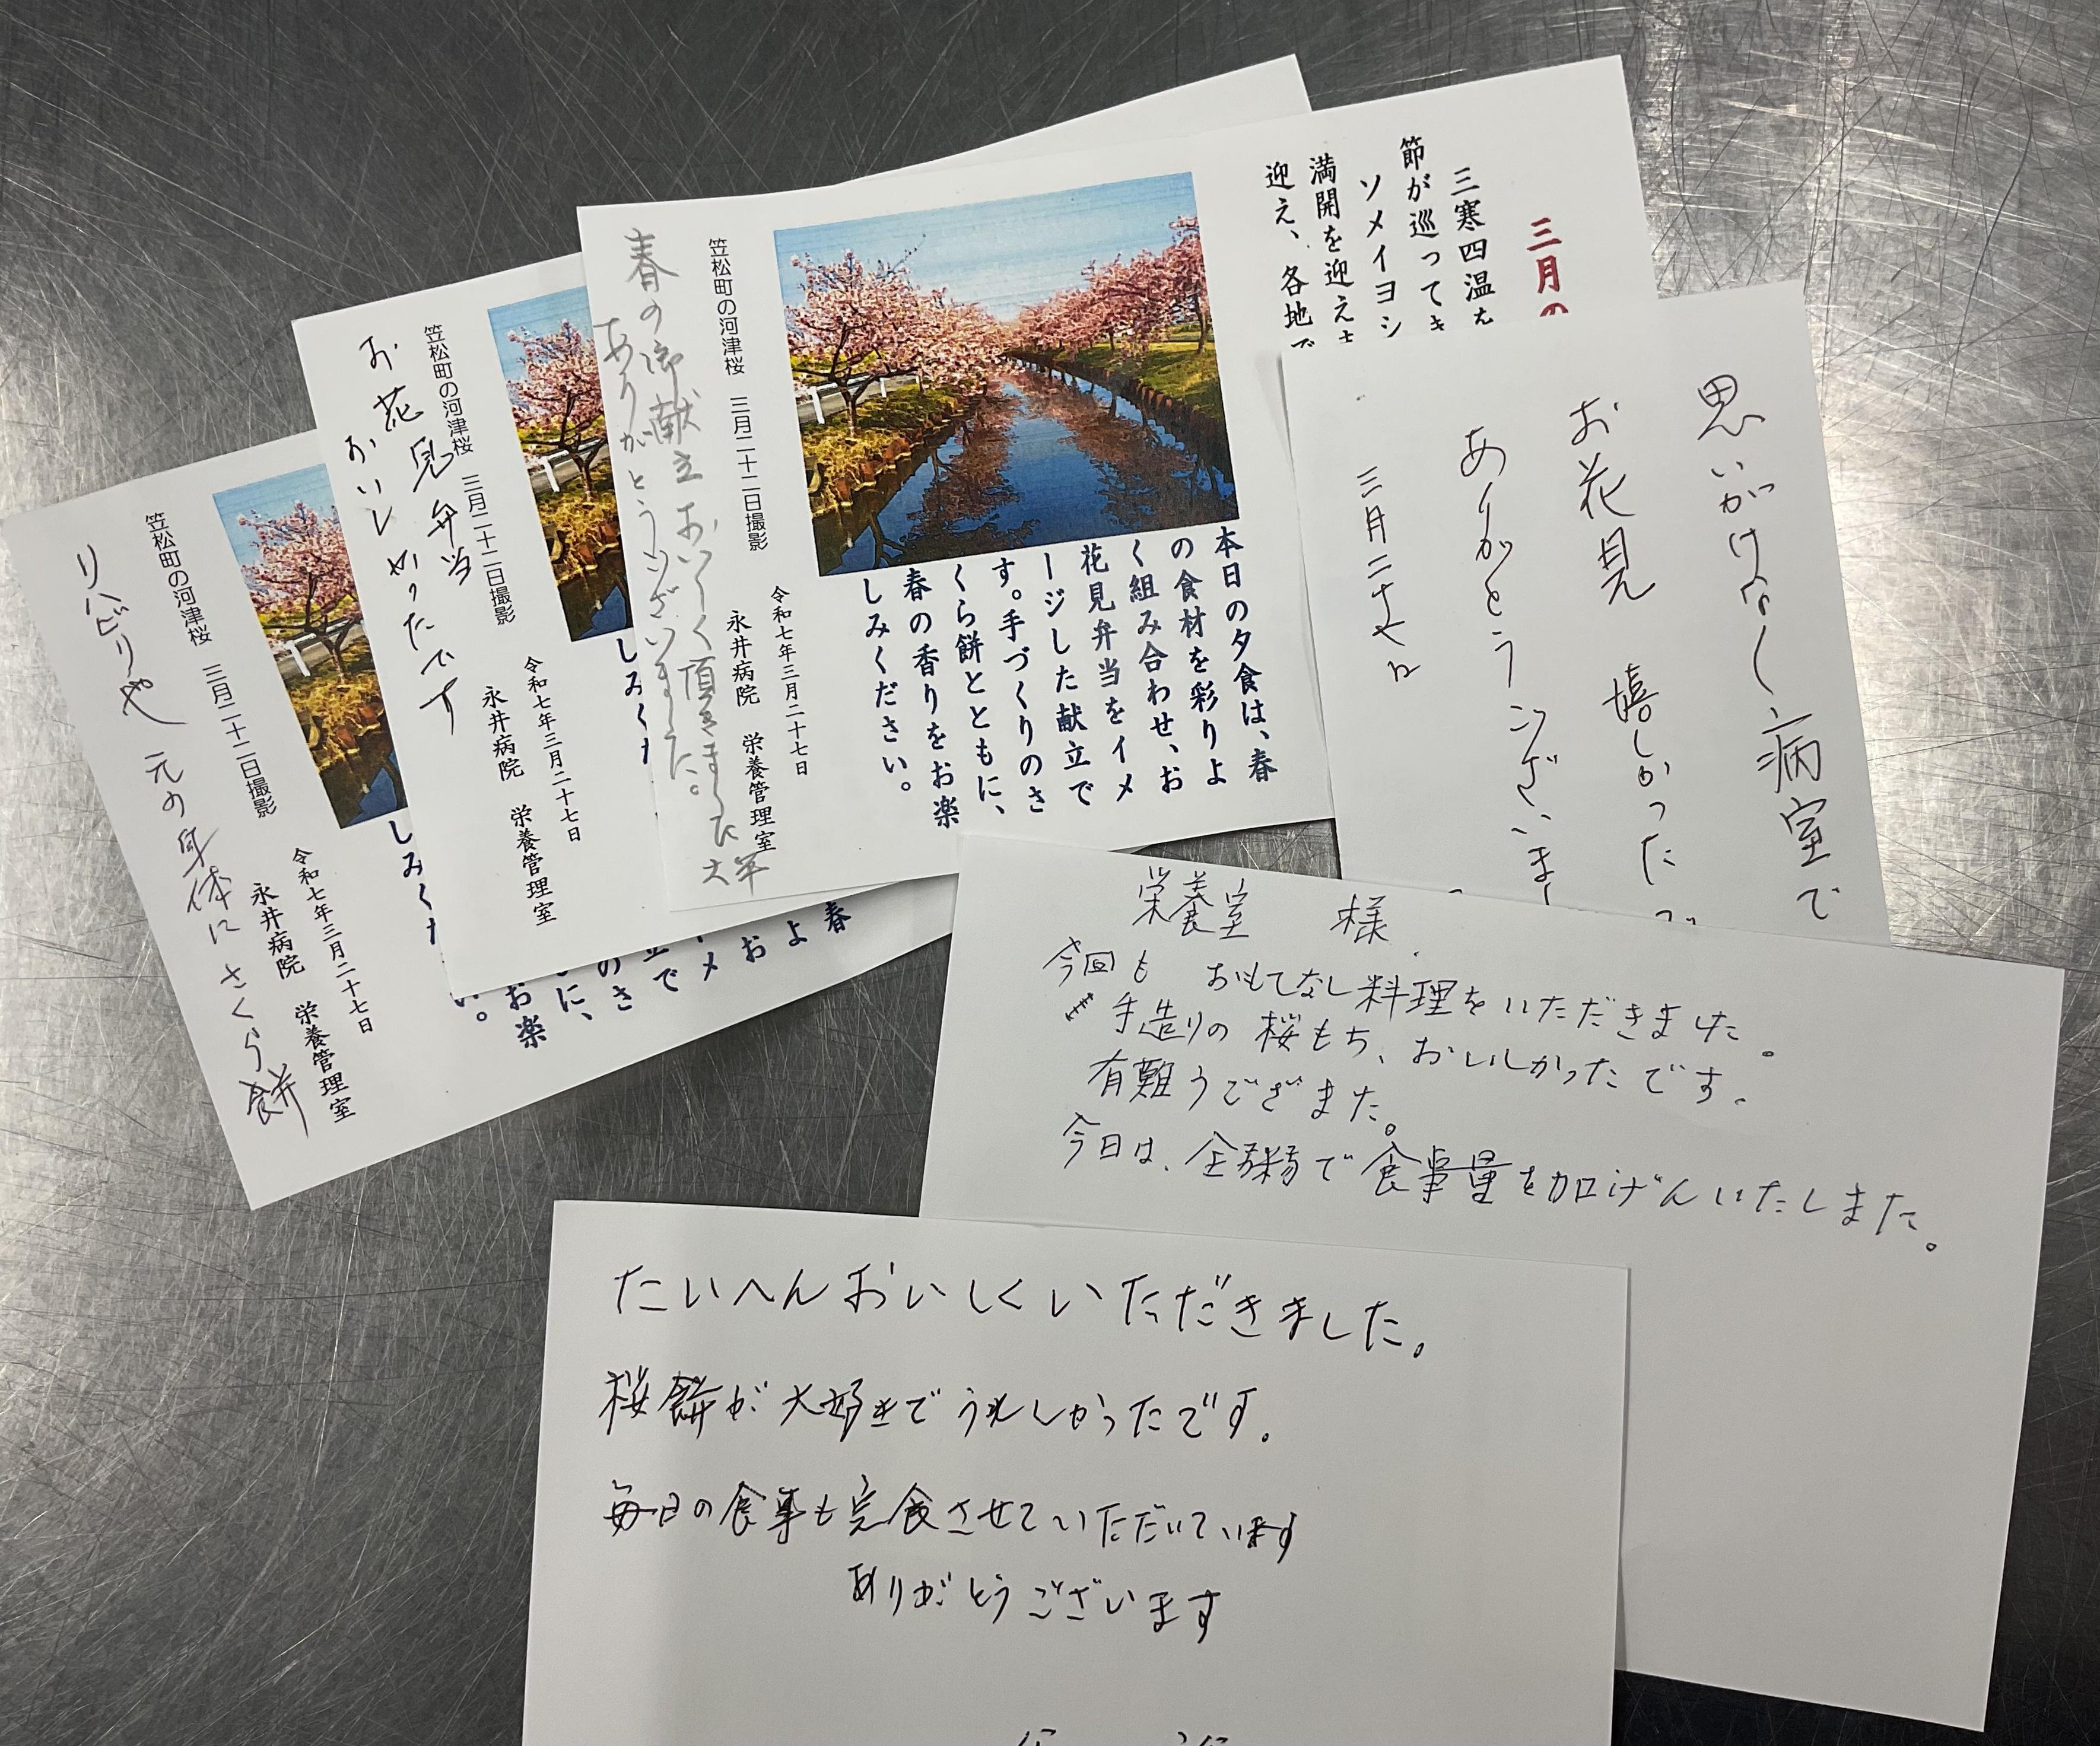 三月の
三寒四温
節が巡ってき
ソメイヨシ
満開を迎え
迎え、各地で
本日の夕食は、春
の食材を彩りよ
く組み合わせ、お
花見弁当をイメ
ージした献立で
す。手づくりのさ
くら餅とともに、
春の香りをお楽
しみください。
令和七年三月二十七日
永井病院 栄養管理室
笠松町の河津桜 三月二十二日撮影
春の御献立おいしく頂きました
ありがとうございました。
しみくだ
令和七年三月二十七日
永井病院 栄養管理室
笠松町の河津桜 三月二十二日撮影
お花見弁当
おいしかったです
春
よ
お
メ
で
のさ
に、
お楽
い。
しみくだ
令和七年三月二十七日
永井病院 栄養管理室
笠松町の河津桜 三月二十二日撮影
リハビリや 元の身体に さくら餅
思いがけなく、病室で
お花見 嬉しかったで
ありがとうございまし
三月二十七日
栄養室 様
今回も おもてなし料理をいただきました。
手造りの 桜もち、おいしかったです。
有難うござました。
今日は、全粥で食事量を加げんいたしました。
たいへんおいしくいただきました。
桜餅が大好きでうれしかったです。
毎日の食事も完食させていただいています
ありがとうございます